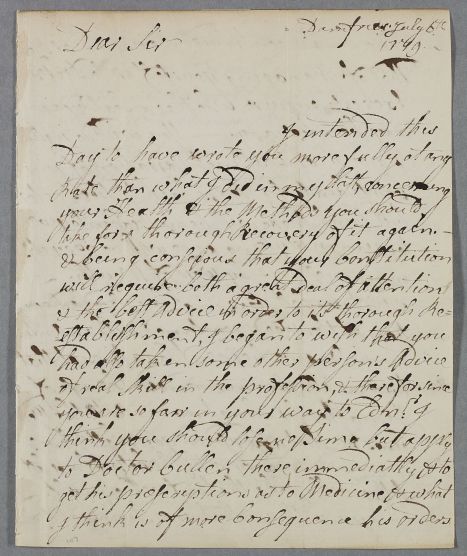 Dear Sir
Dumfries July 6th
1779
I intended this
Day to have wrote you more fully at any
Rate than what I Did in my last concerning
your Health & the Methods you should
take for a thorough Recovery of it again. –
& being conscious that your Constitution
will require both a great Deal of attention
& the best Advice in order to its thorough Re=
establishment, I began to wish that you
had also taken some other persons Advice
of real Skill in the profession, & therefor since
you're so farr in your way to Edn.r I
think you should lose no Time but apply
to Doctor Cullen there immediatly & to
get his prescriptions as to Medicine & what
I think is of more Consequence his orders